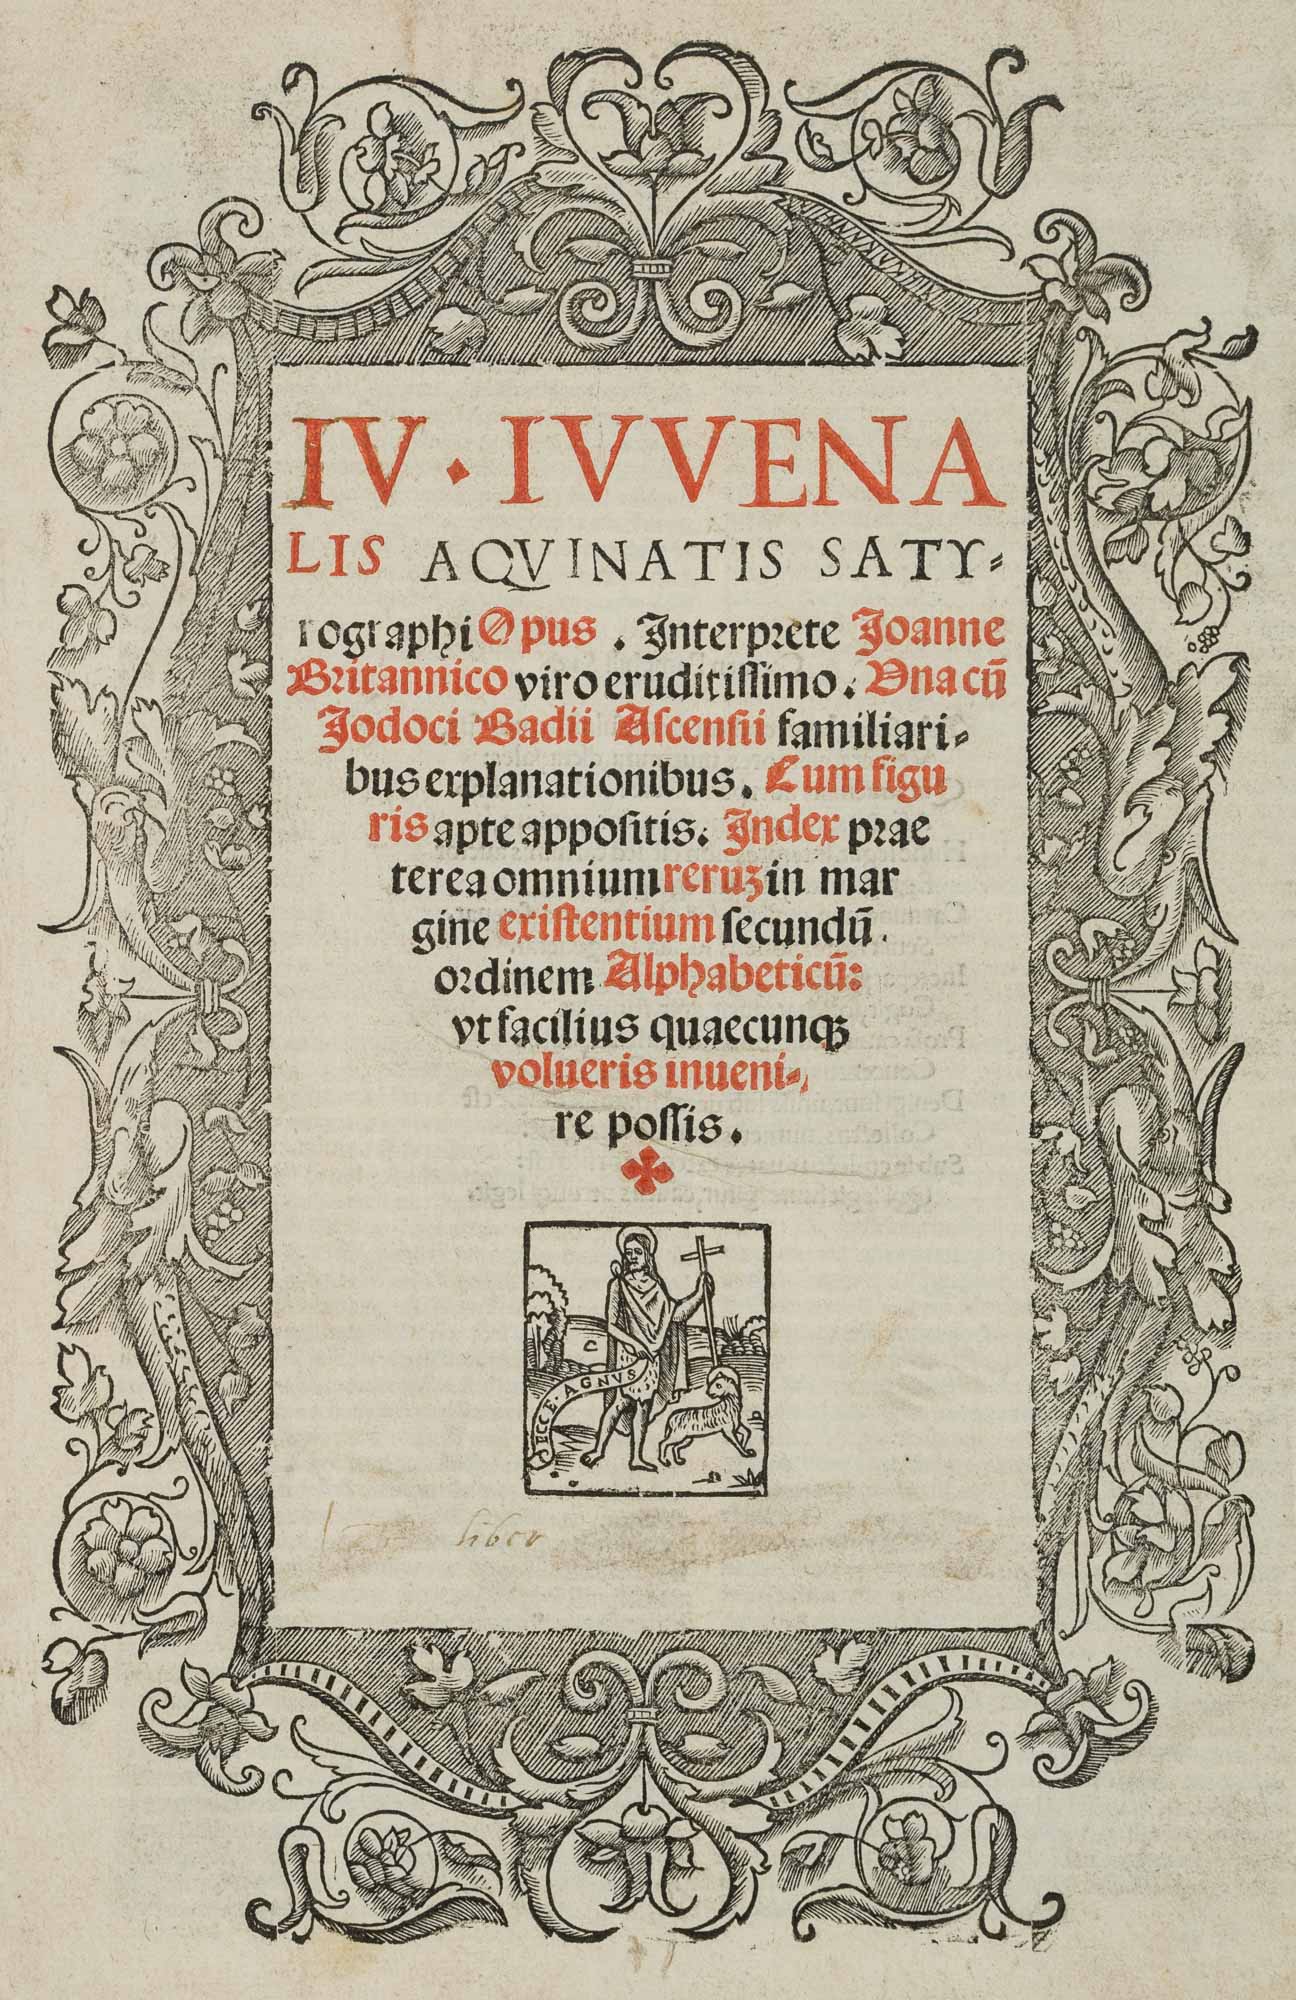 IV · IVVENA
LIS AQVINATIS SATY⸗
rographi Opus . Interprete Joanne
Britannico viro eruditissimo . Vna cũ
Jodoci Badii Ascensii familiari⸗
bus explanationibus . Cum figu
ris apte appositis . Index prae
terea omnium reruꝫ in mar
gine existentium secundũ .
ordinem Alphabeticũ:
vt facilius quaecunqꝫ
volueris inueni⸗
re possis .
ECCE · AGNVS
liber